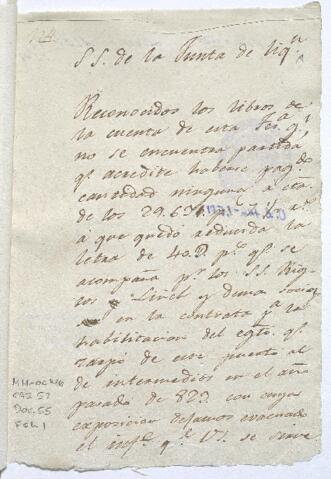 124.
SS. de la Junta de liqn
Reconocidos los libros de
la cuenta de esta Tesa. q.
no se encuentra partida
q. acredite haberse pagdo
cantidad ninguna a cta.
de los 29.637 ps.
á que quedó reducida la
letra de 40.D ps. q. se
acompaña pr. los SS. Rig
los Linch y demas socios
en la contrata pa. la
habilitacion del egto. q.
zarpó de este puerto al
de intermedios en el año
pasado de 823 con cuya
exposicion dejamos evacuado
el infe. q. VS. se sirve
MH-OL 146
CAJ 57
DOC. 55
FOL 1